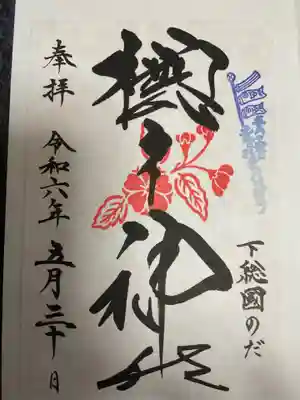 下総國のだ
櫻木神社
奉拝
令和六年五月三十日